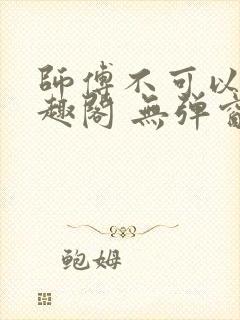 師傅不可以
趣閣 無彈窗
鮑姆